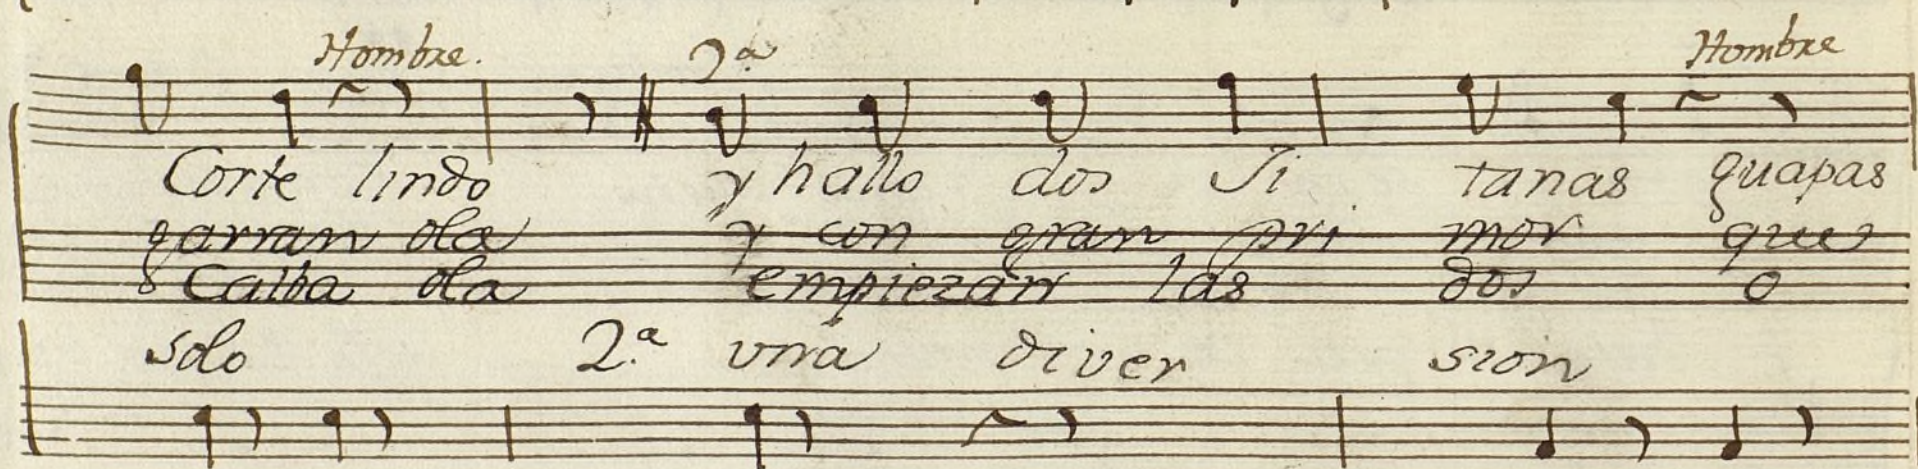 Hombre. 2ª Hombre
Corte lindo y hallo dos Ji tanas guapas
garran ola y con gran pri mor que
Calba ola empiezan las dos o
solo 2.ª vna diver sion